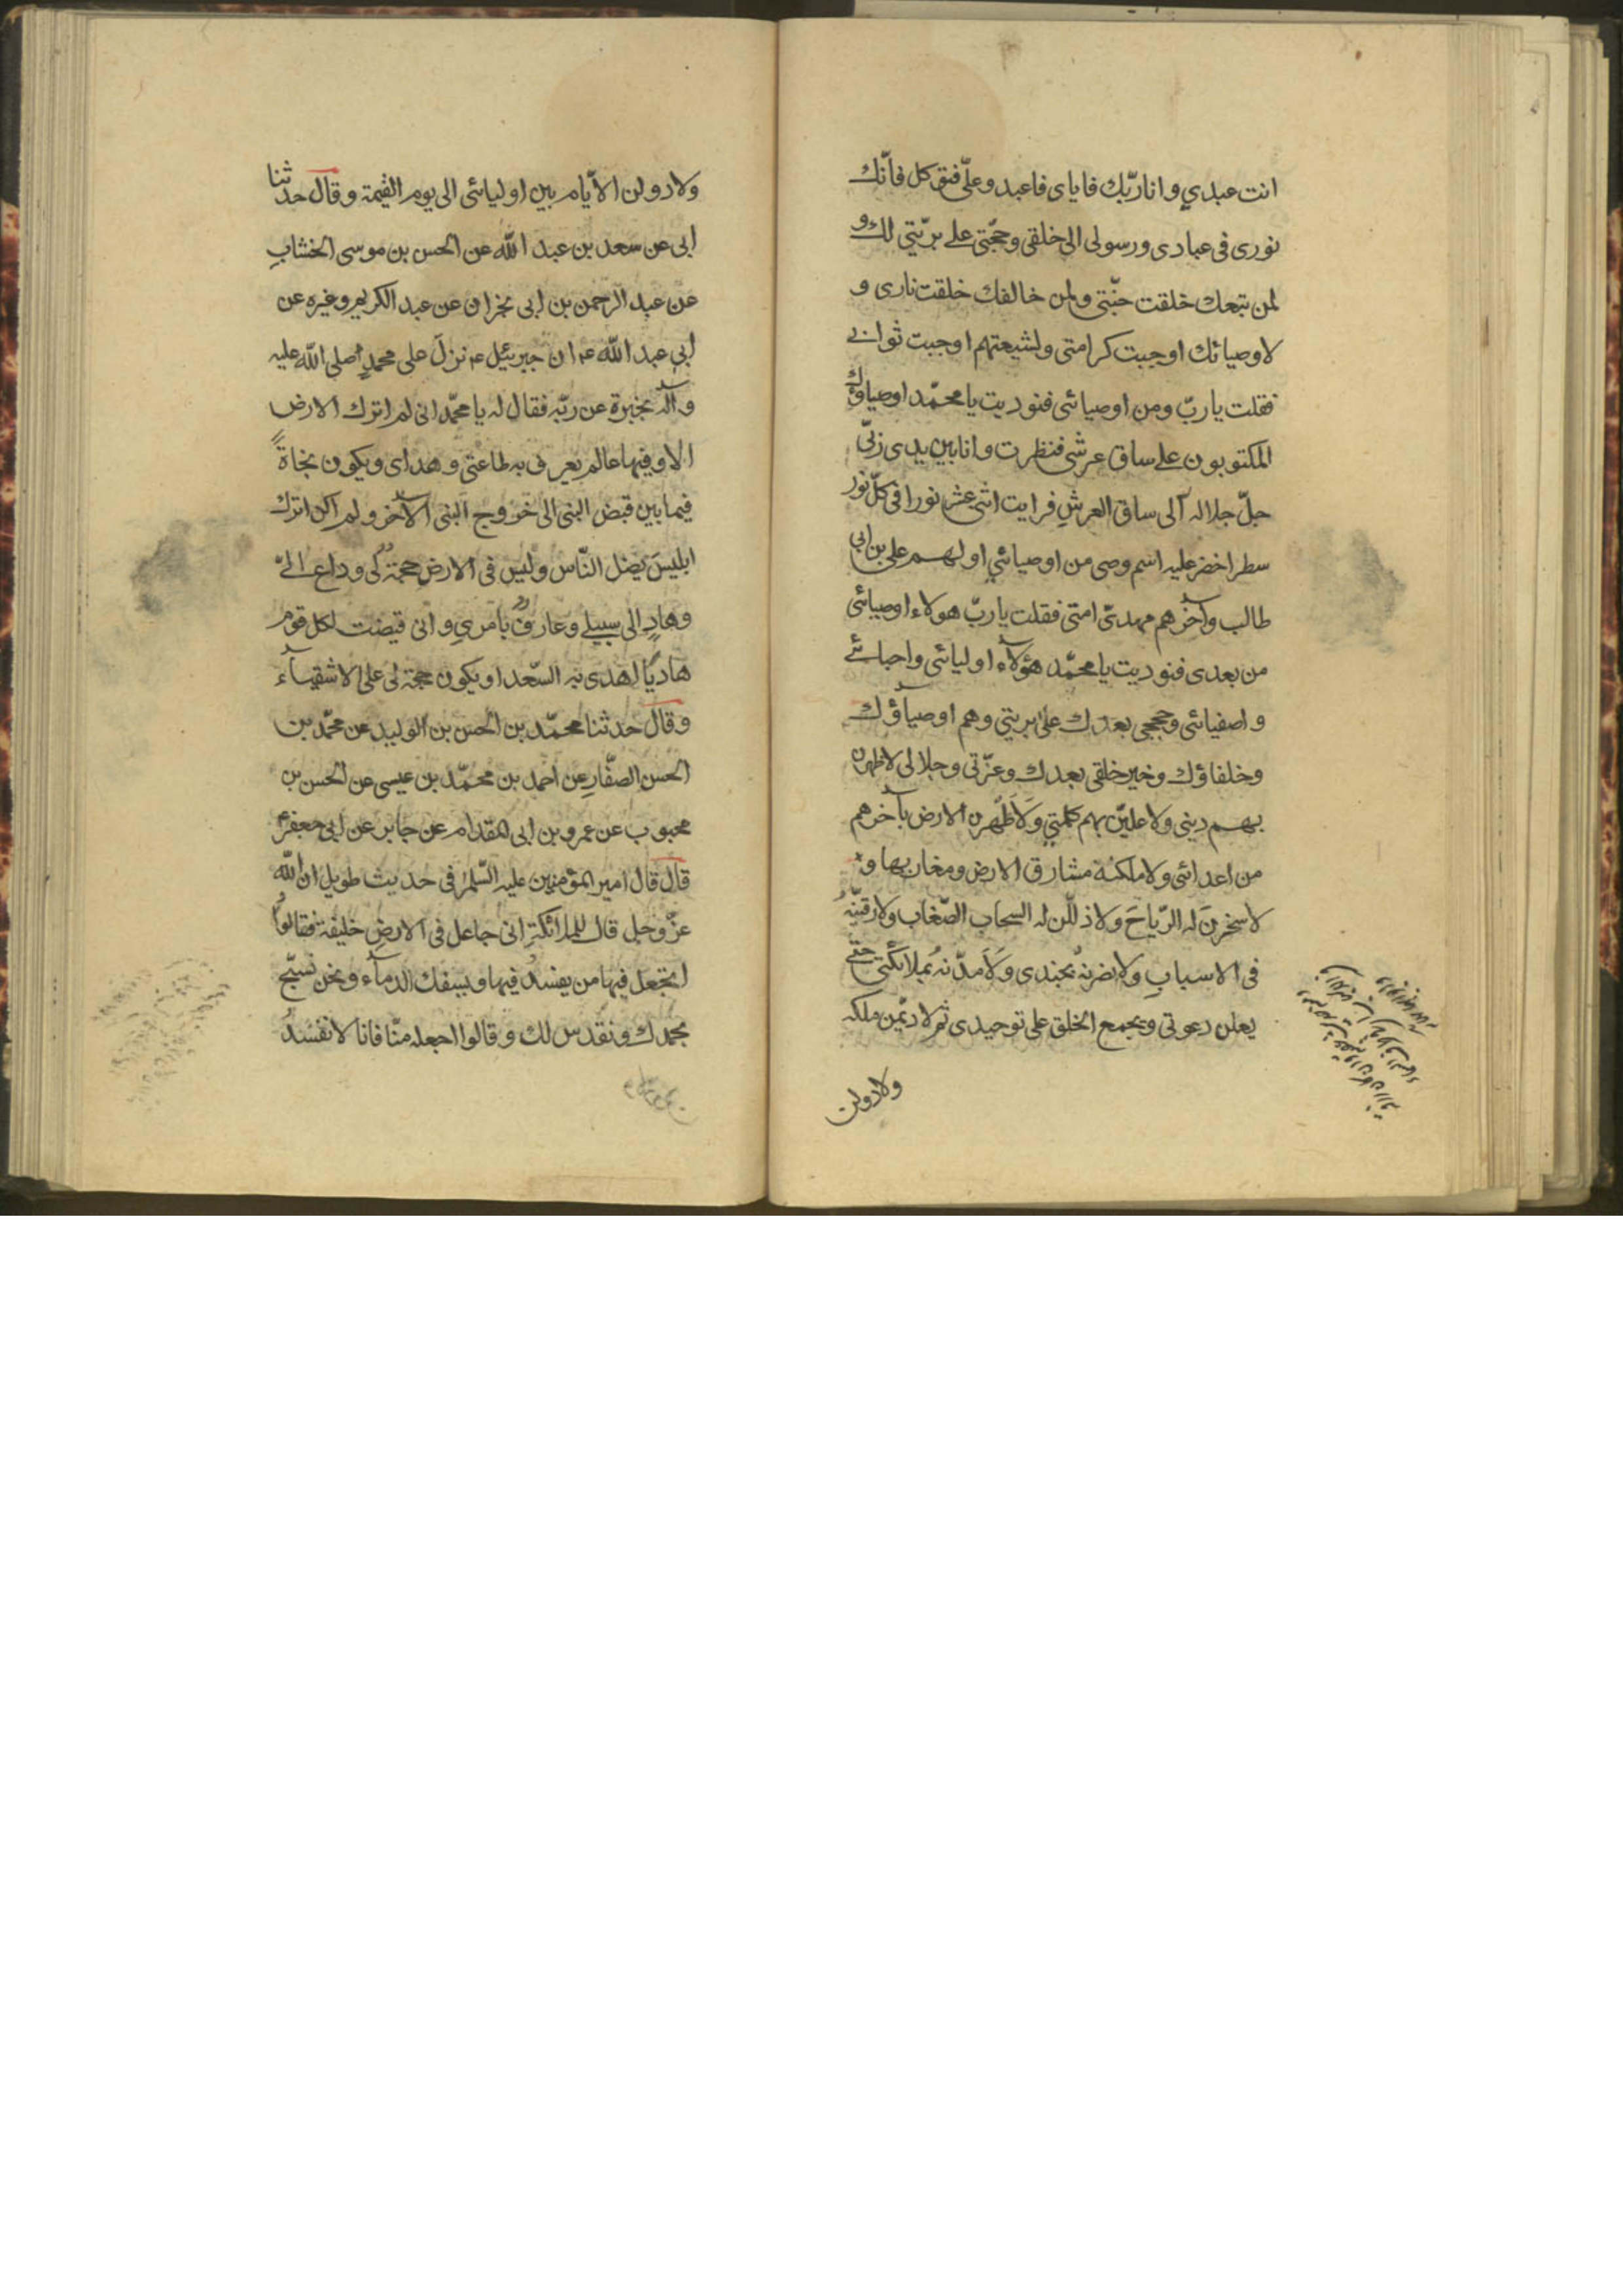 انت عبدي وانا ربّك فاياى فاعبد وعلىّ فتوكل فانّك
نورى فى عبادى ورسولى الى خلقى وحجّتى على بريّتي لك و
لمن تبعك خلقت جنّتى ولمن خالفك خلقت نارى و
لاوصيائك اوجبت كرامتى ولشيعتهم اوجبت ثوابى
فقلت يا ربّ ومن اوصيائى فنوديت يا محمّد اوصياؤك
المكتوبون على ساق عرشى فنظرت وانا بين يدى ربّى
جلّ جلاله الى ساق العرشِ فرايت اثنى عشر نورا فى كلّ نور
سطر اخضر عليه اسم وصى من اوصيائي اولهم على بن ابى
طالب وآخرهم مهدىّ امتى فقلت يا ربّ هولاء اوصيائى
من بعدى فنوديت يا محمّد هؤلآء اوليائى واحبائے
واصفيائى وحججى بعدك على بريتي وهم اوصيآؤك
وخلفاؤك وخير خلقى بعدك وعزّتى وجلالى لاظهرن
بهم دينى ولاعلينّ بهم كلمتي وَلَاَطَهّرن الارض بآخرهم
من اعدائى ولاملكنه مشارق الارض ومغاربها و
لاسخرنَ له الرّياحَ ولاذلّلن له السحاب الصّعاب ولارقينّهُ
فى الاسبابِ ولانضرنهُ بجندى وَلَاَمدّنهُ بملائكتى حتى
يعلن دعوتى ويجمع الخلق على توحيدى ثم لاديمّن ملكه
ولادولن
ولادولن الايّام بين اوليائى الى يوم القيمة وقال حدثنا
ابى عن سعد بن عبد اللّه عن الحسن بن موسى الخشابِ
عن عبد الرحمن بن ابى نجران عن عبد الكريم وغيره عن
ابى عبد اللّه ع ان جبرئيل ع نزلَ على محمدٍ صلى اللّه عليه
وآله يخبرة عن ربّه فقال له يا محمّد انى لم اترك الارض
الا وفيها عالم يعرف به طاعتي وهداى ويكون نجاةً
فيما بين قبض النبى الى خروج النبى الآخر ولم اكن اترك
ابليسَ يضل النّاس وليس فى الارض حجةٌ لى وداع الىّ
وهادٍ الى سبيلى وعارفٌ بامرىِ وانى قيضت لكل قوم
هاديًا اهدى به السّعدا ويكون حجة لى على الاشقيآء
وقال حدثنا محمّد بن الحسن بن الوليد عن محمّد بن
الحسن الصفّارِ عن احمد بن محمّد بن عيسى عن الحسن بن
محبوب عن عمرو بن ابى المقدام عن جابر عن ابى جعفر ع
قال قال امير المؤمنين عليه السّلم فى حديث طويل ان اللّه
عزّ وجل قال للملائكةِ انى جاعل فى الارضِ خليفة فقالوا
اتجعل فيها من يفسدُ فيها ويسفك الدمآء ونحن نسبّح
بحمدك ونقدس لك وقالوا اجعله منّا فانا لا نفسدُ